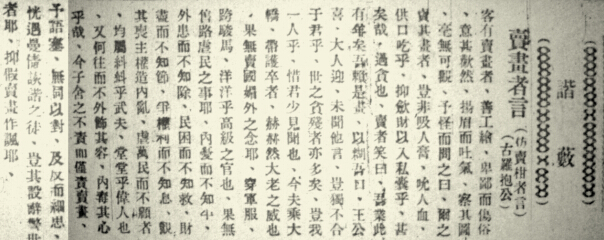 諧藪
賣畫者言（仿賣柑者言）
（古羅抱公）
客有賣畫者、善工繪、卑鄙而傷俗
、意其歉然、揚眉而吐氣、察其圖
毫無可觀、予怪而問之曰、爾之
賣其畫者、豈非吸人膏、吮人血、
供口吃乎、抑歛財以入私囊乎、甚
矣哉、過貪也、賣者笑曰、吾業此
有年矣吾
喜、大人迎、未聞他言、豈獨不合
于君乎、世之貪殘者亦多矣、豈我
一人乎、惜君少見聞也、今夫乘大
轎、帶護卒者、赫赫然大老之威也
、果無賣國媚外之念耶、穿軍服
跨駿馬、洋洋乎高級之官也、果無
舊路虐民之事耶、內憂而不知平、
外患而不知除、民困而不知救、財
盡而不知節、爭權利而不知息、觀
其喪主權造內亂、虐萬民而不顧者
、均屬糾糾乎武夫、堂堂乎偉人也
、又何往而不外飾其容、內毒其心
乎哉、今子舍之不責而僅責賣畫、
予語塞、無詞以對、及反而細思、
恍遇曼倩詼諧之徒、豈其設辭警世
者耶、抑假賣畫作諷耶、